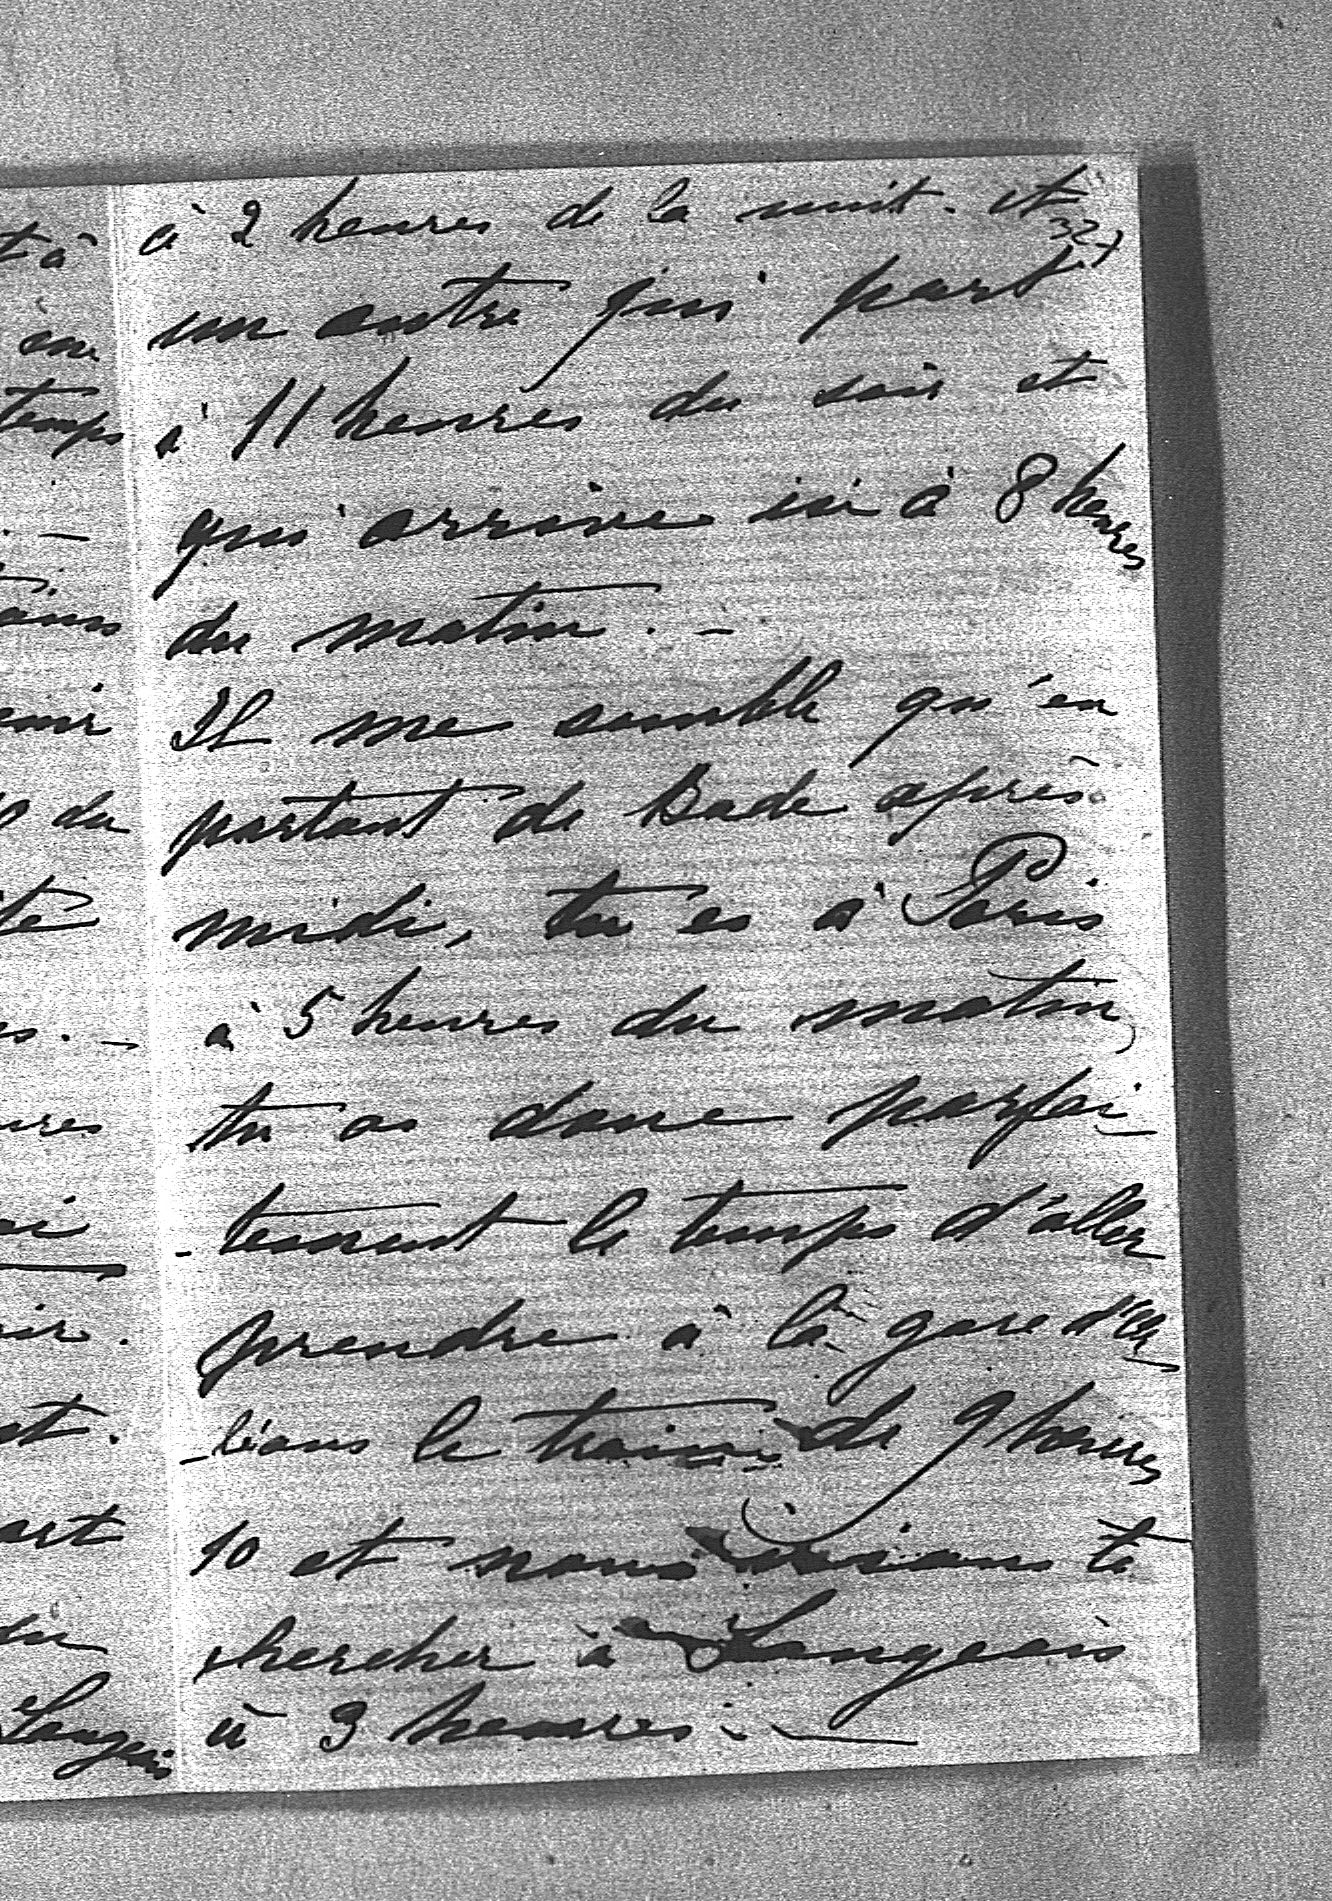 à 2 heures de la nuit. et
327
un autre qui part
à 11 heures du soir et
qui arrive ici à 8 heures
du matin. —
Il me semble qu'en
partant de Bade après
midi, tu es à Paris
à 5 heures du matin,
tu as donc parfai-
-tement le temps d'aller
prendre à la gare d'Or-
-léans le train de 9 heures
10 et nous irions te
chercher à Langeais
à 3 heures. —
t à
temps
. —
du
té
es. —
ures
ir.
st.
art
du
Langeais